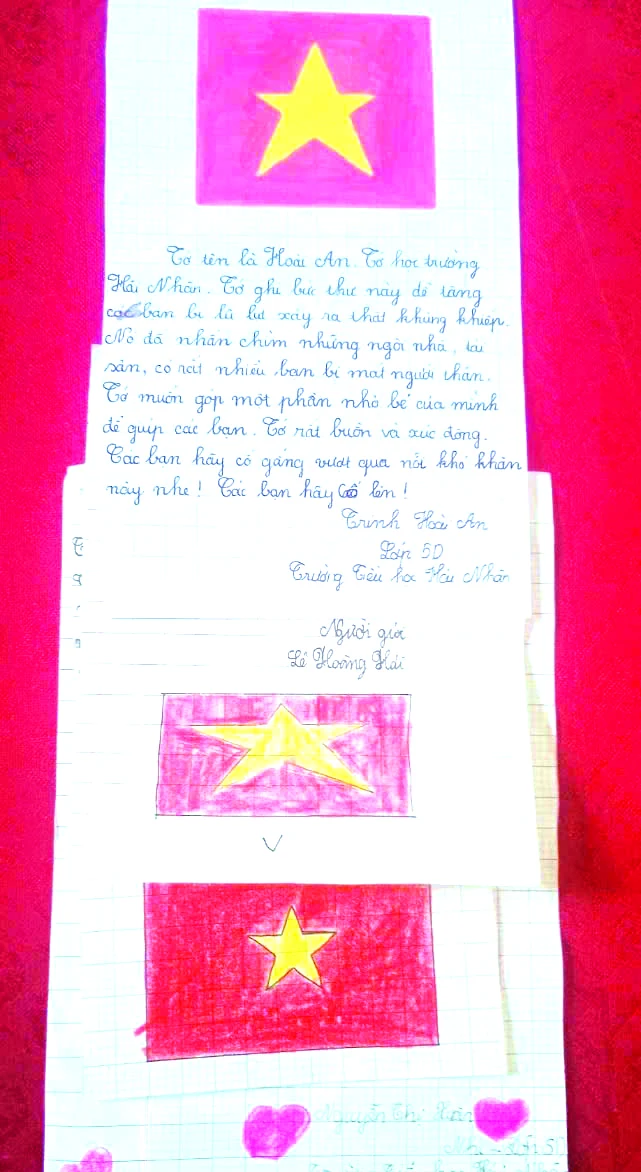 Tớ tên là Hoài An. Tớ học trường
Hải Nhân. Tớ ghi bức thư này để tặng
các bạn bị lũ lụt xảy ra thật khủng khiếp.
Nó đã nhấn chìm những ngôi nhà, tài
sản, có rất nhiều bạn bị mất người thân.
Tớ muốn góp một phần nhỏ bé của mình
để giúp các bạn. Tớ rất buồn và xúc động.
Các bạn hãy cố gắng vượt qua nỗi khó khăn
này nhé! Các bạn hãy cố lên!
Trịnh Hoài An
Lớp 5D
Trường Tiểu học Hải Nhân
Người gửi
Lê Hoàng Hải
Nguyễn Thị